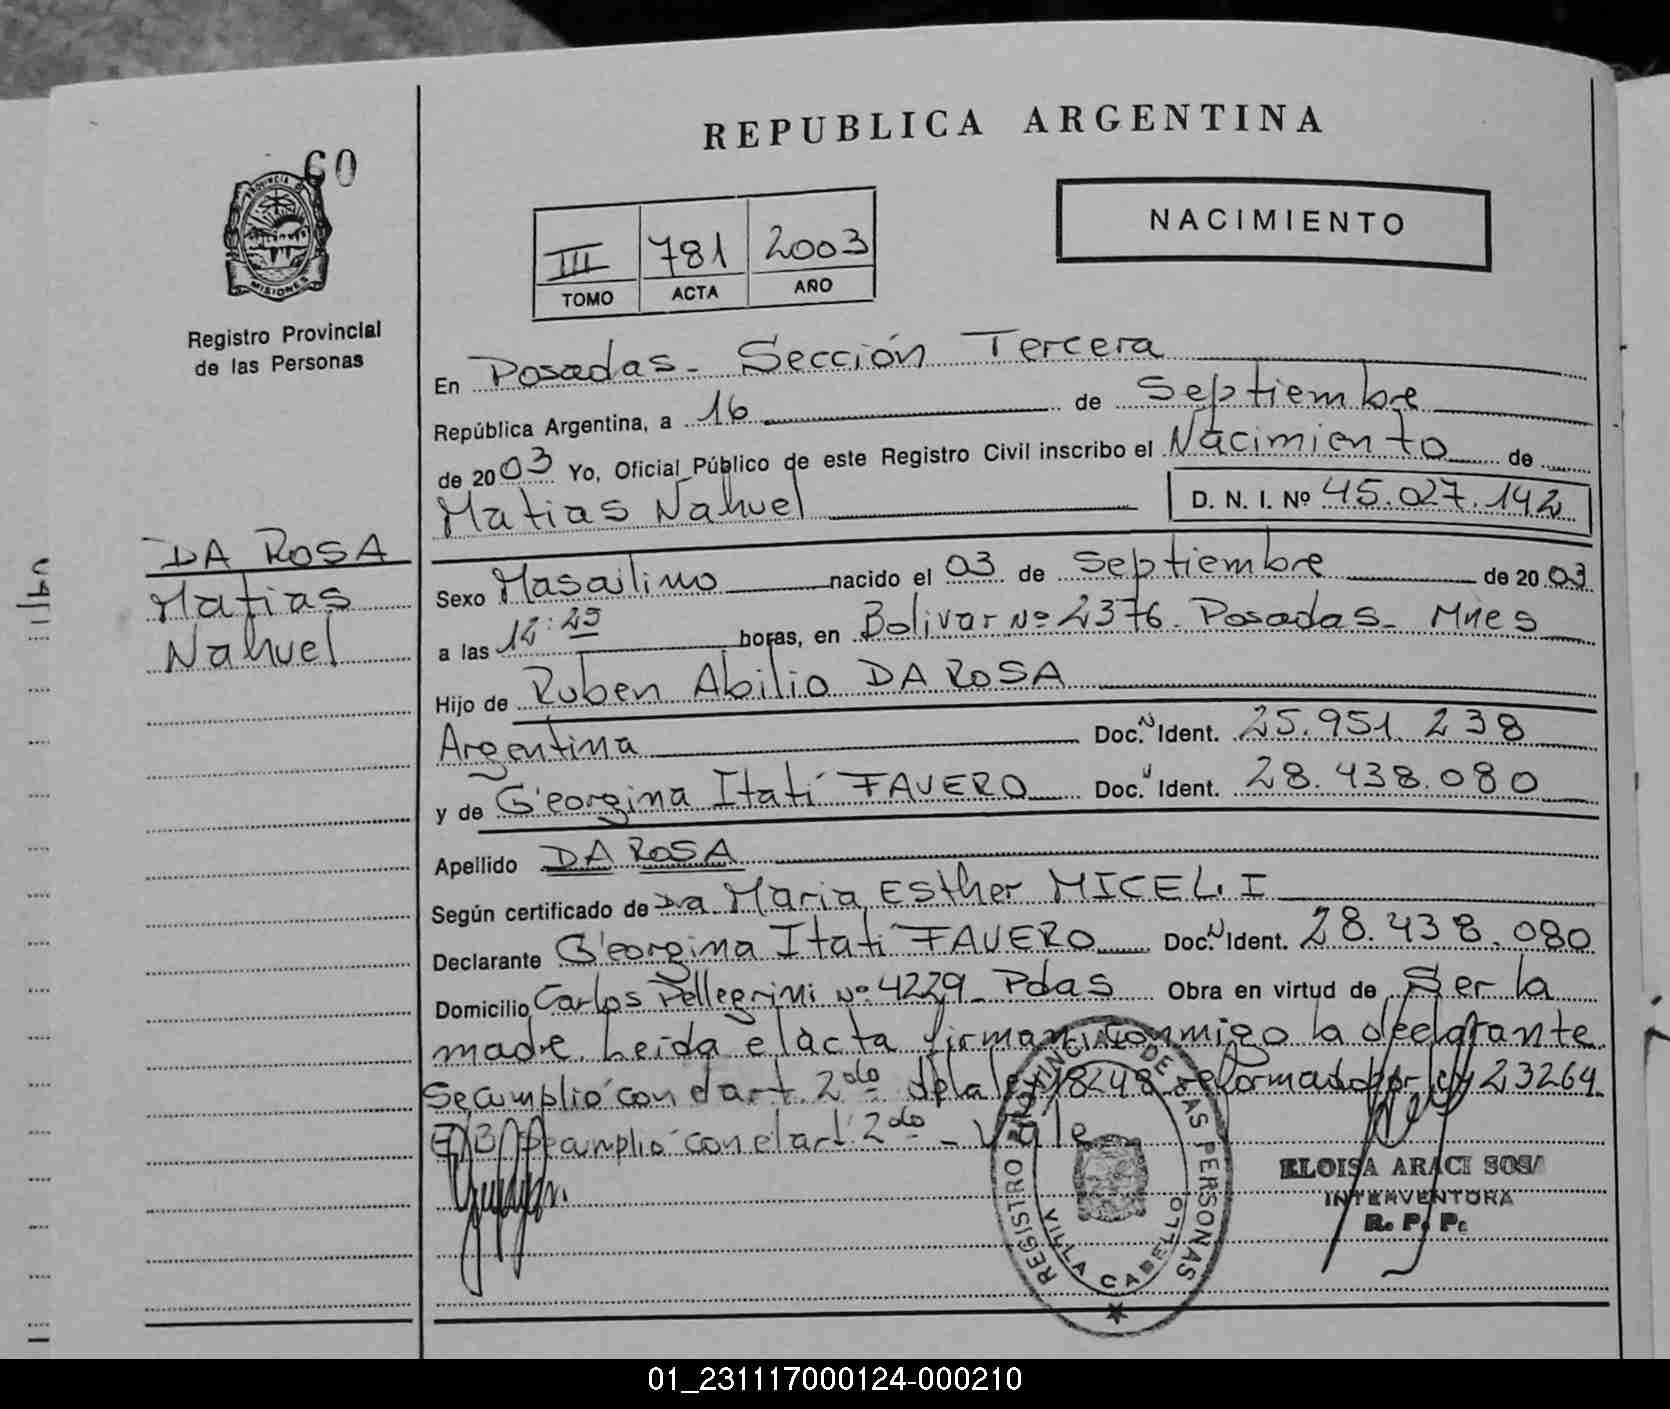 REPUBLICA ARGENTINA
60
PROVINCIA DE
MISIONES
Registro Provincial
de las Personas
NACIMIENTO
III 781 2003
TOMO ACTA AÑO
En Posadas - Sección Tercera
República Argentina, a 16 de Septiembre
de 2003 Yo, Oficial Público de este Registro Civil inscribo el Nacimiento de
Matias Nahuel D. N. I. Nº 45.027.142
DA ROSA
Matias
Nahuel
Sexo Masculino nacido el 03 de Septiembre de 2003
a las horas, en Bolivar Nº 2376. Posadas - Mnes
Hijo de Ruben Abilio DA ROSA
Argentina Doc. N Ident. 25.951.238
y de Georgina Itatí FAVERO Doc. N Ident. 28.438.080
Apellido DA ROSA
Según certificado de Dra Maria Esther MICELI
Declarante Georgina Itatí FAVERO Doc. N Ident. 28.438.080
Domicilio Carlos Pellegrini Nº 4229 - Pdas Obra en virtud de Ser la
madre. Leida el acta firman conmigo la declarante
Se cumplió con el art. 2do de la ley 18248 reformado por ley 23264
Se cumplió con el art 2do - Vale
REGISTRO PROVINCIAL DE LAS PERSONAS
VILLA CABELLO
ELOISA ARACI SOSA
INTERVENTORA
R. P. P.
01_231117000124-000210